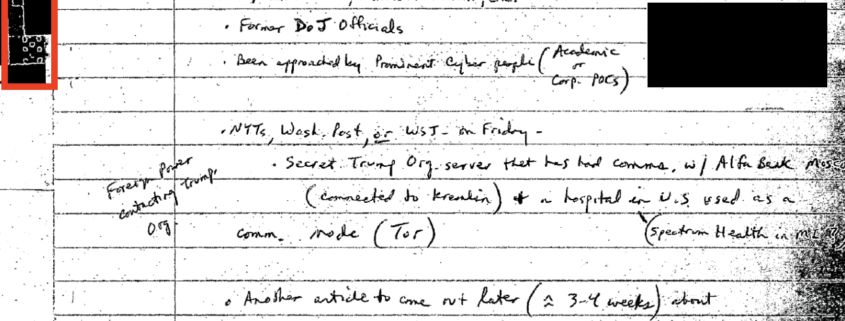 • Former DoJ Officials
• Been approached by Prominent Cyber people (Academic
or
Corp. POCs)
• NYTs, Wash. Post, or WSJ - on Friday -
• Secret Trump Org. server that has had comms. w/ Alfa Bank
(connected to Kremlin) + a hospital in U.S. used as a
comm. node (Tor)
(Spectrum Health in
Foreign Power
contacting Trump.
Org
• Another article to come out later (≈ 3-4 weeks) about